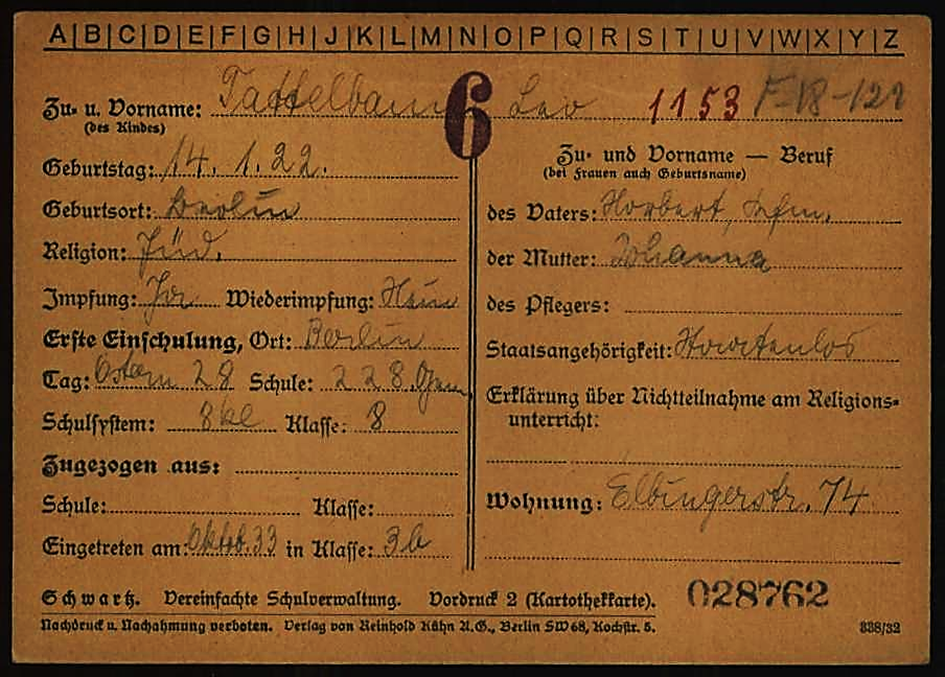 A|B|C|D|E|F|G|H|J|K|L|M|N|O|P|Q|R|S|T|U|V|W|X|Y|Z
Zu- u. Vorname: Tattelbaum Leo 1153 F-18-122
(des Kindes)
6
Geburtstag: 14. 1. 22.
Geburtsort: Berlin
Religion: Jüd.
Impfung: Ja Wiederimpfung: Nein
Erste Einschulung, Ort: Berlin
Tag: Ostern 28 Schule: 228. Gem
Schulsystem: 8kl Klasse: 8
Zugezogen aus:
Schule: Klasse:
Eingetreten am: Oktob. 33 in Klasse: 3b
Zu- und Vorname — Beruf
(bei Frauen auch Geburtsname)
des Vaters: Norbert,
der Mutter: Johanna
des Pflegers:
Staatsangehörigkeit: Staatenlos
Erklärung über Nichtteilnahme am Religions-
unterricht:
Wohnung: Elbingerstr. 74
Schwartz. Vereinfachte Schulverwaltung. Vordruck 2 (Kartothekkarte). 028762
Nachdruck u. Nachahmung verboten. Verlag von Reinhold Kühn A.G., Berlin SW 68, Kochstr. 5. 338/32